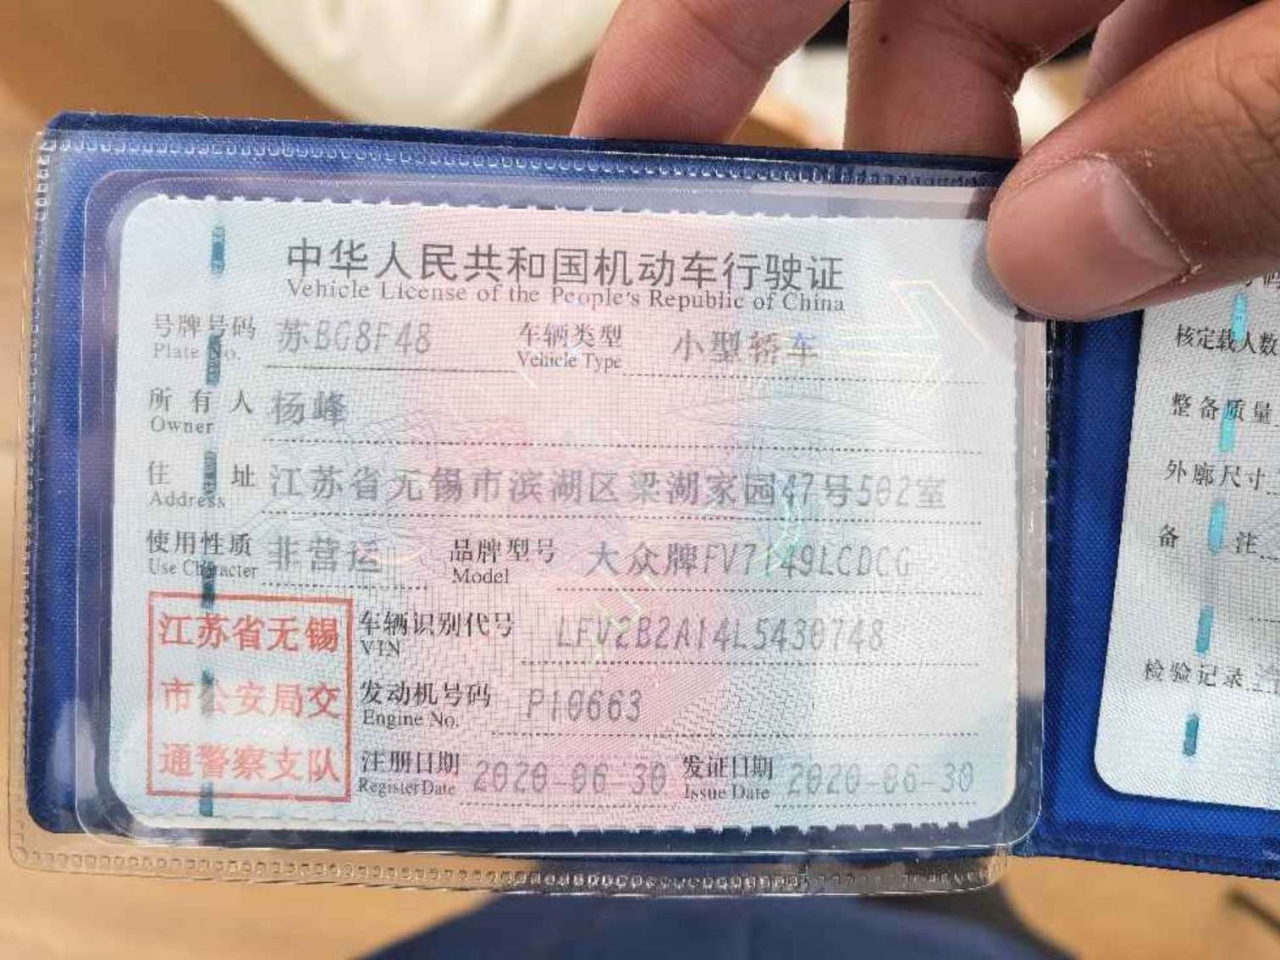 中华人民共和国机动车行驶证
Vehicle License of the People's Republic of China
号牌号码 苏BG8F48 车辆类型 小型轿车
Plate No. Vehicle Type
所有人 杨峰
Owner
住址 江苏省无锡市滨湖区梁湖家园47号502室
Address
使用性质 非营运 品牌型号 大众牌FV7149LCDCG
Use Character Model
江苏省无锡
市公安局交
通警察支队
车辆识别代号 LFV2B2A14L5430748
VIN
发动机号码 P10663
Engine No.
注册日期 2020-06-30 发证日期 2020-06-30
Register Date Issue Date
核定载人数
整备质量
外廓尺寸
备注
检验记录